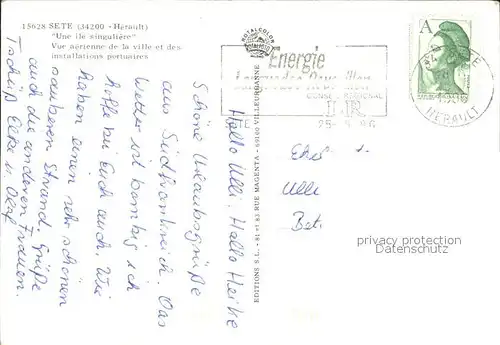 15628 SETE (34200 - Hérault)
"Une île singulière"
Vue aérienne de la ville et des
installations portuaires
ROYALCOLOR
Energie
CONSEIL REGIONAL
LR
25-5 86
A
HERAULT
EDITIONS S.L. - 81-83 RUE MAGENTA - 69100 VILLEURBANNE
Hallo Ulli, Hallo Heike
Schöne Urlaubsgrüße
aus Südfrankreich. Das
Wetter ist bombig ich
hoffe bei Euch auch. Wir
haben einen sehr schönen
sauberen Strand. Grüße
auch die anderen Frauen.
Tschüß Elke u. Olaf
Ulli
privacy protection
Datenschutz